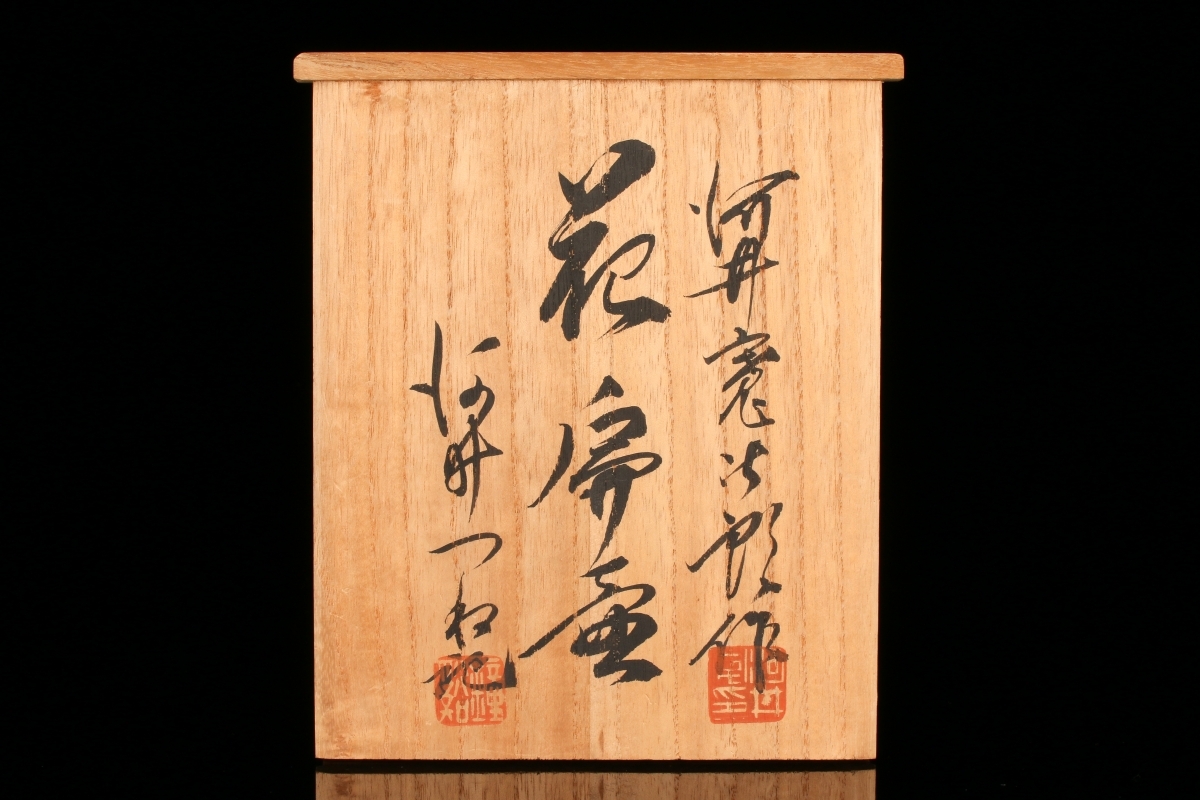 河井寛次郎作
花扁壷
河井つね